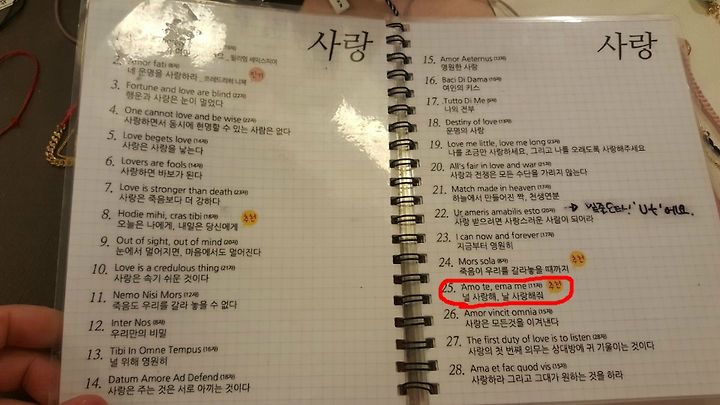 사랑
윌리엄 셰익스피어
2. Amor fati (8자)
네 운명을 사랑하라 _ 프레드리히 니체
인기
3. Fortune and love are blind (22자)
행운과 사랑은 눈이 멀었다
4. One cannot love and be wise (22자)
사랑하면서 동시에 현명할 수 있는 사람은 없다
5. Love begets love (14자)
사랑은 사랑을 낳는다
6. Lovers are fools (14자)
사랑하면 바보가 된다
7. Love is stronger than death (23자)
사랑은 죽음보다 더 강하다
8. Hodie mihi, cras tibi (18자)
추천
오늘은 나에게, 내일은 당신에게
9. Out of sight, out of mind (20자)
눈에서 멀어지면, 마음에서도 멀어진다
10. Love is a credulous thing (21자)
사랑은 속기 쉬운 것이다
11. Nemo Nisi Mors (12자)
죽음도 우리를 갈라 놓을 수 없다
12. Inter Nos (8자)
우리만의 비밀
13. Tibi In Omne Tempus (16자)
널 위해 영원히
14. Datum Amore Ad Defend (18자)
사랑은 주는 것은 서로 아끼는 것이다
사랑
15. Amor Aeternus (12자)
영원한 사랑
16. Baci Di Dama (10자)
여인의 키스
17. Tutto Di Me (9자)
나의 전부
18. Destiny of love (13자)
운명의 사랑
19. Love me little, love me long (23자)
나를 조금만 사랑하세요, 그리고 나를 오래도록 사랑해주세요
20. All's fair in love and war (21자)
사랑과 전쟁은 모든 수단을 가리지 않는다
21. Match made in heaven (17자)
하늘에서 만들어진 짝, 천생연분
22. Ur ameris amabilis esto (20자)
사랑 받으려면 사랑스러운 사람이 되어라
23. I can now and forever (17자)
지금부터 영원히
24. Mors sola (8자)
추천
죽음이 우리를 갈라놓을 때까지
25. Amo te, ema me (11자)
추천
널 사랑해, 날 사랑해줘
26. Amor vincit omnia (15자)
사랑은 모든것을 이겨낸다
27. The first duty of love is to listen (28자)
사랑의 첫 번째 의무는 상대방에 귀 기울이는 것이다
28. Ama et fac quod vis (15자)
사랑하라 그리고 그대가 원하는 것을 하라